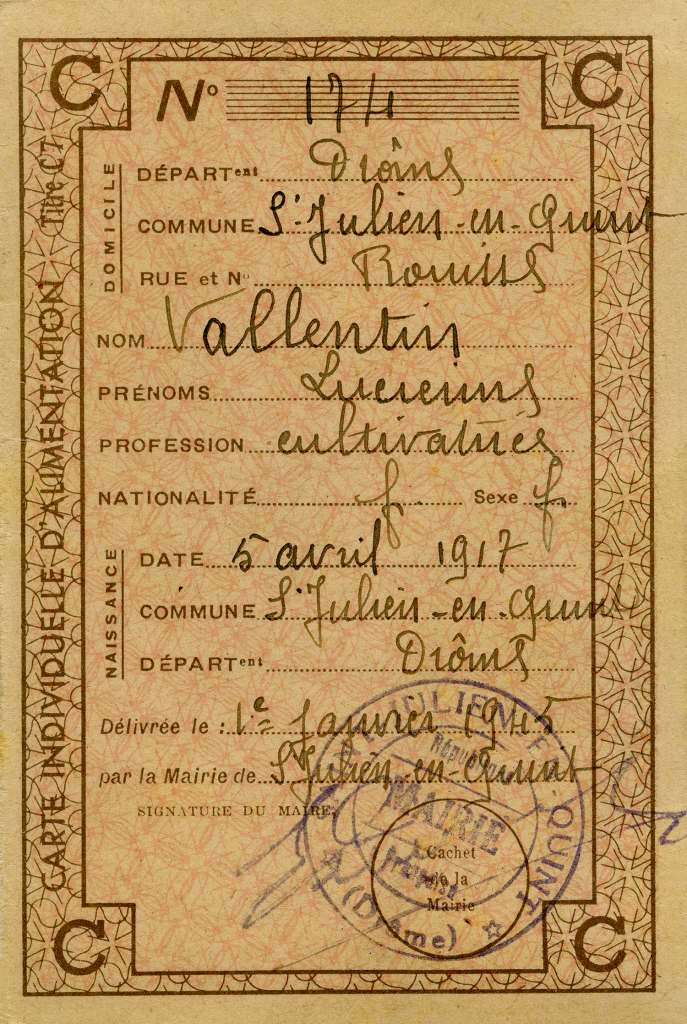 C C
N° 174
DOMICILE
DÉPARTent Drôme
COMMUNE St Julien-en-Quint
RUE et No
NOM Vallentin
PRÉNOMS Lucienne
PROFESSION cultivatrice
NATIONALITÉ f. Sexe f.
NAISSANCE
DATE 5 avril 1917
COMMUNE St Julien-en-Quint
DÉPARTent Drôme
Délivrée le : 1e Janvier 1945
par la Mairie de St Julien-en-Quint
SIGNATURE DU MAIRE,
Cachet
de la
Mairie
C C
CARTE INDIVIDUELLE D'ALIMENTATION Titre C7
JULIEN EN QUINT
République
MAIRIE
Française
(Drôme)